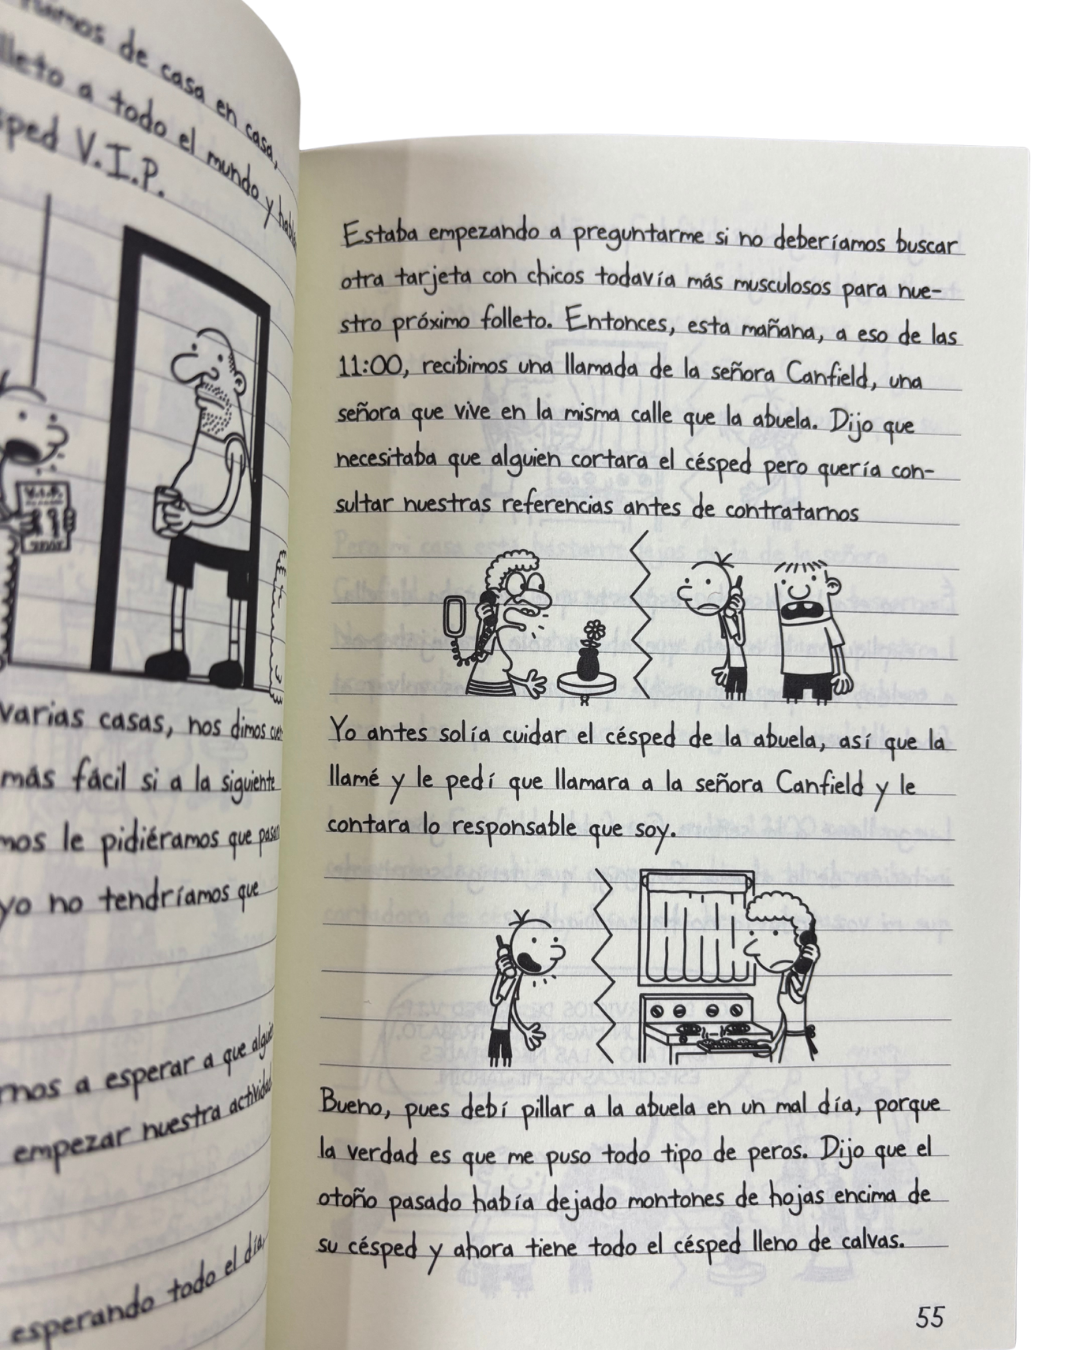 de casa en casa,
a todo el mundo y
V.I.P.
V.I.P.
varias casas, nos dimos
más fácil si a la siguiente
le pidiéramos que
yo no tendríamos que
a esperar a que
empezar nuestra
esperando todo el día,
Estaba empezando a preguntarme si no deberíamos buscar
otra tarjeta con chicos todavía más musculosos para nue-
stro próximo folleto. Entonces, esta mañana, a eso de las
11:00, recibimos una llamada de la señora Canfield, una
señora que vive en la misma calle que la abuela. Dijo que
necesitaba que alguien cortara el césped pero quería con-
sultar nuestras referencias antes de contratarnos
Yo antes solía cuidar el césped de la abuela, así que la
llamé y le pedí que llamara a la señora Canfield y le
contara lo responsable que soy.
Bueno, pues debí pillar a la abuela en un mal día, porque
la verdad es que me puso todo tipo de peros. Dijo que el
otoño pasado había dejado montones de hojas encima de
su césped y ahora tiene todo el césped lleno de calvas.
55